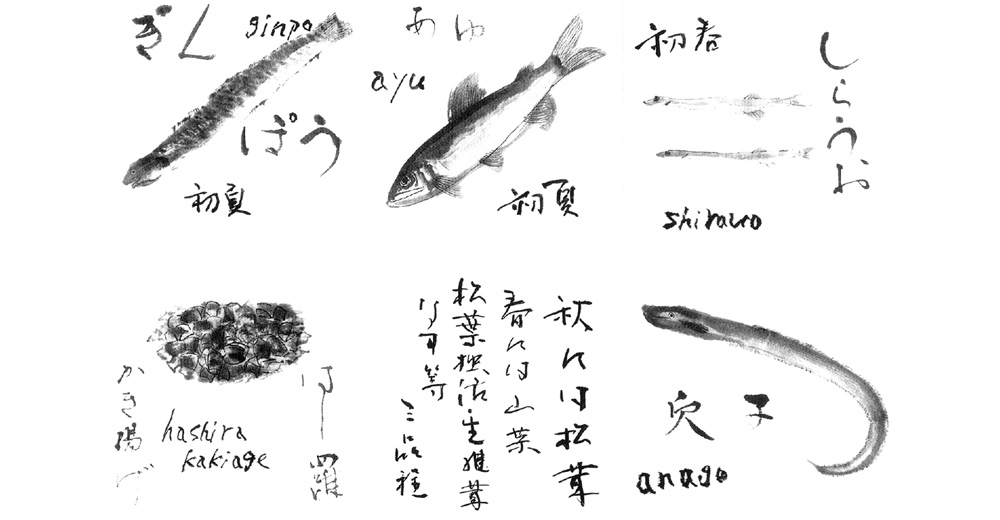 ぎん
ginpo
ぽう
初夏
あゆ
ayu
初夏
初春
しらうお
shirauo
かき揚げ
hashira
kakiage
秋には松茸
春には山菜
松葉独活・生椎茸
三品程
穴子
anago